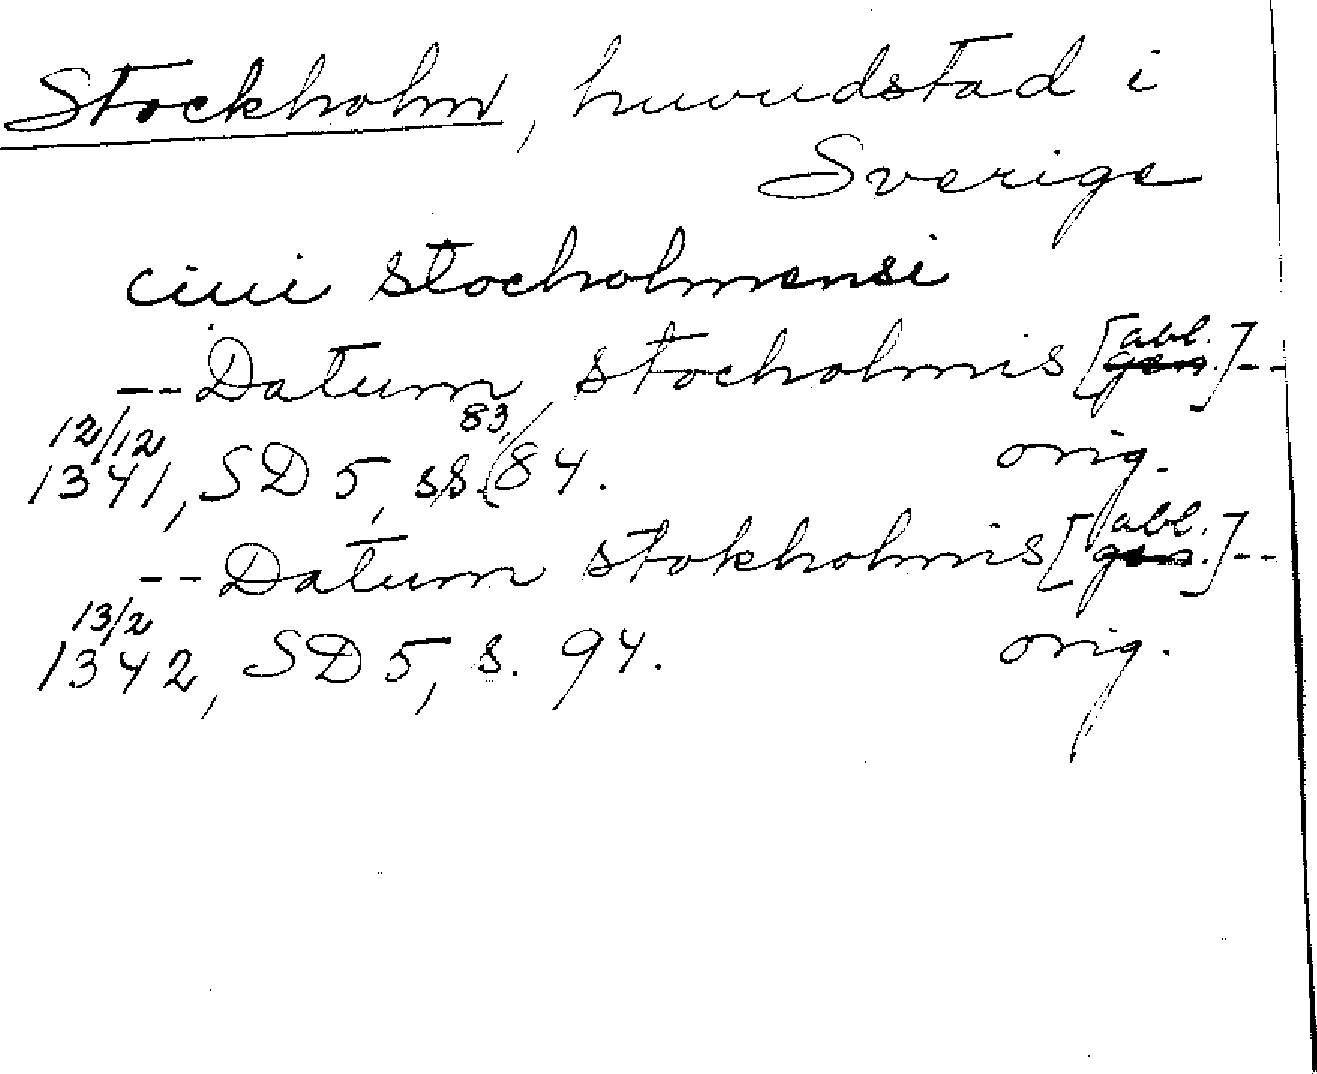 Stockholm, huvudstad i
Sverige
ciui stocholmensi
-- Datum stocholmis [abl. gen.] --
12/12
1341, SD 5, ss. 83, 84. orig.
-- Datum stokholmis [abl. gen.] --
13/2
1342, SD 5, s. 94. orig.